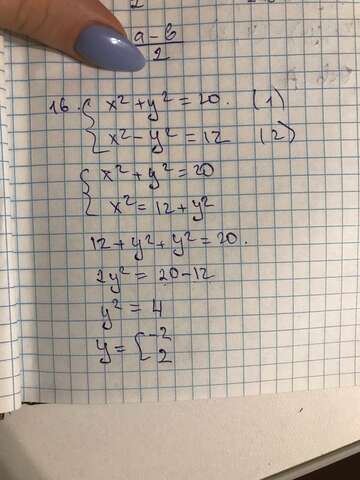 a-b
2
16. { x² + y² = 20. (1)
x² - y² = 12 (2)
{ x² + y² = 20
x² = 12 + y²
12 + y² + y² = 20.
2y² = 20 - 12
y² = 4
y = [ -2
2